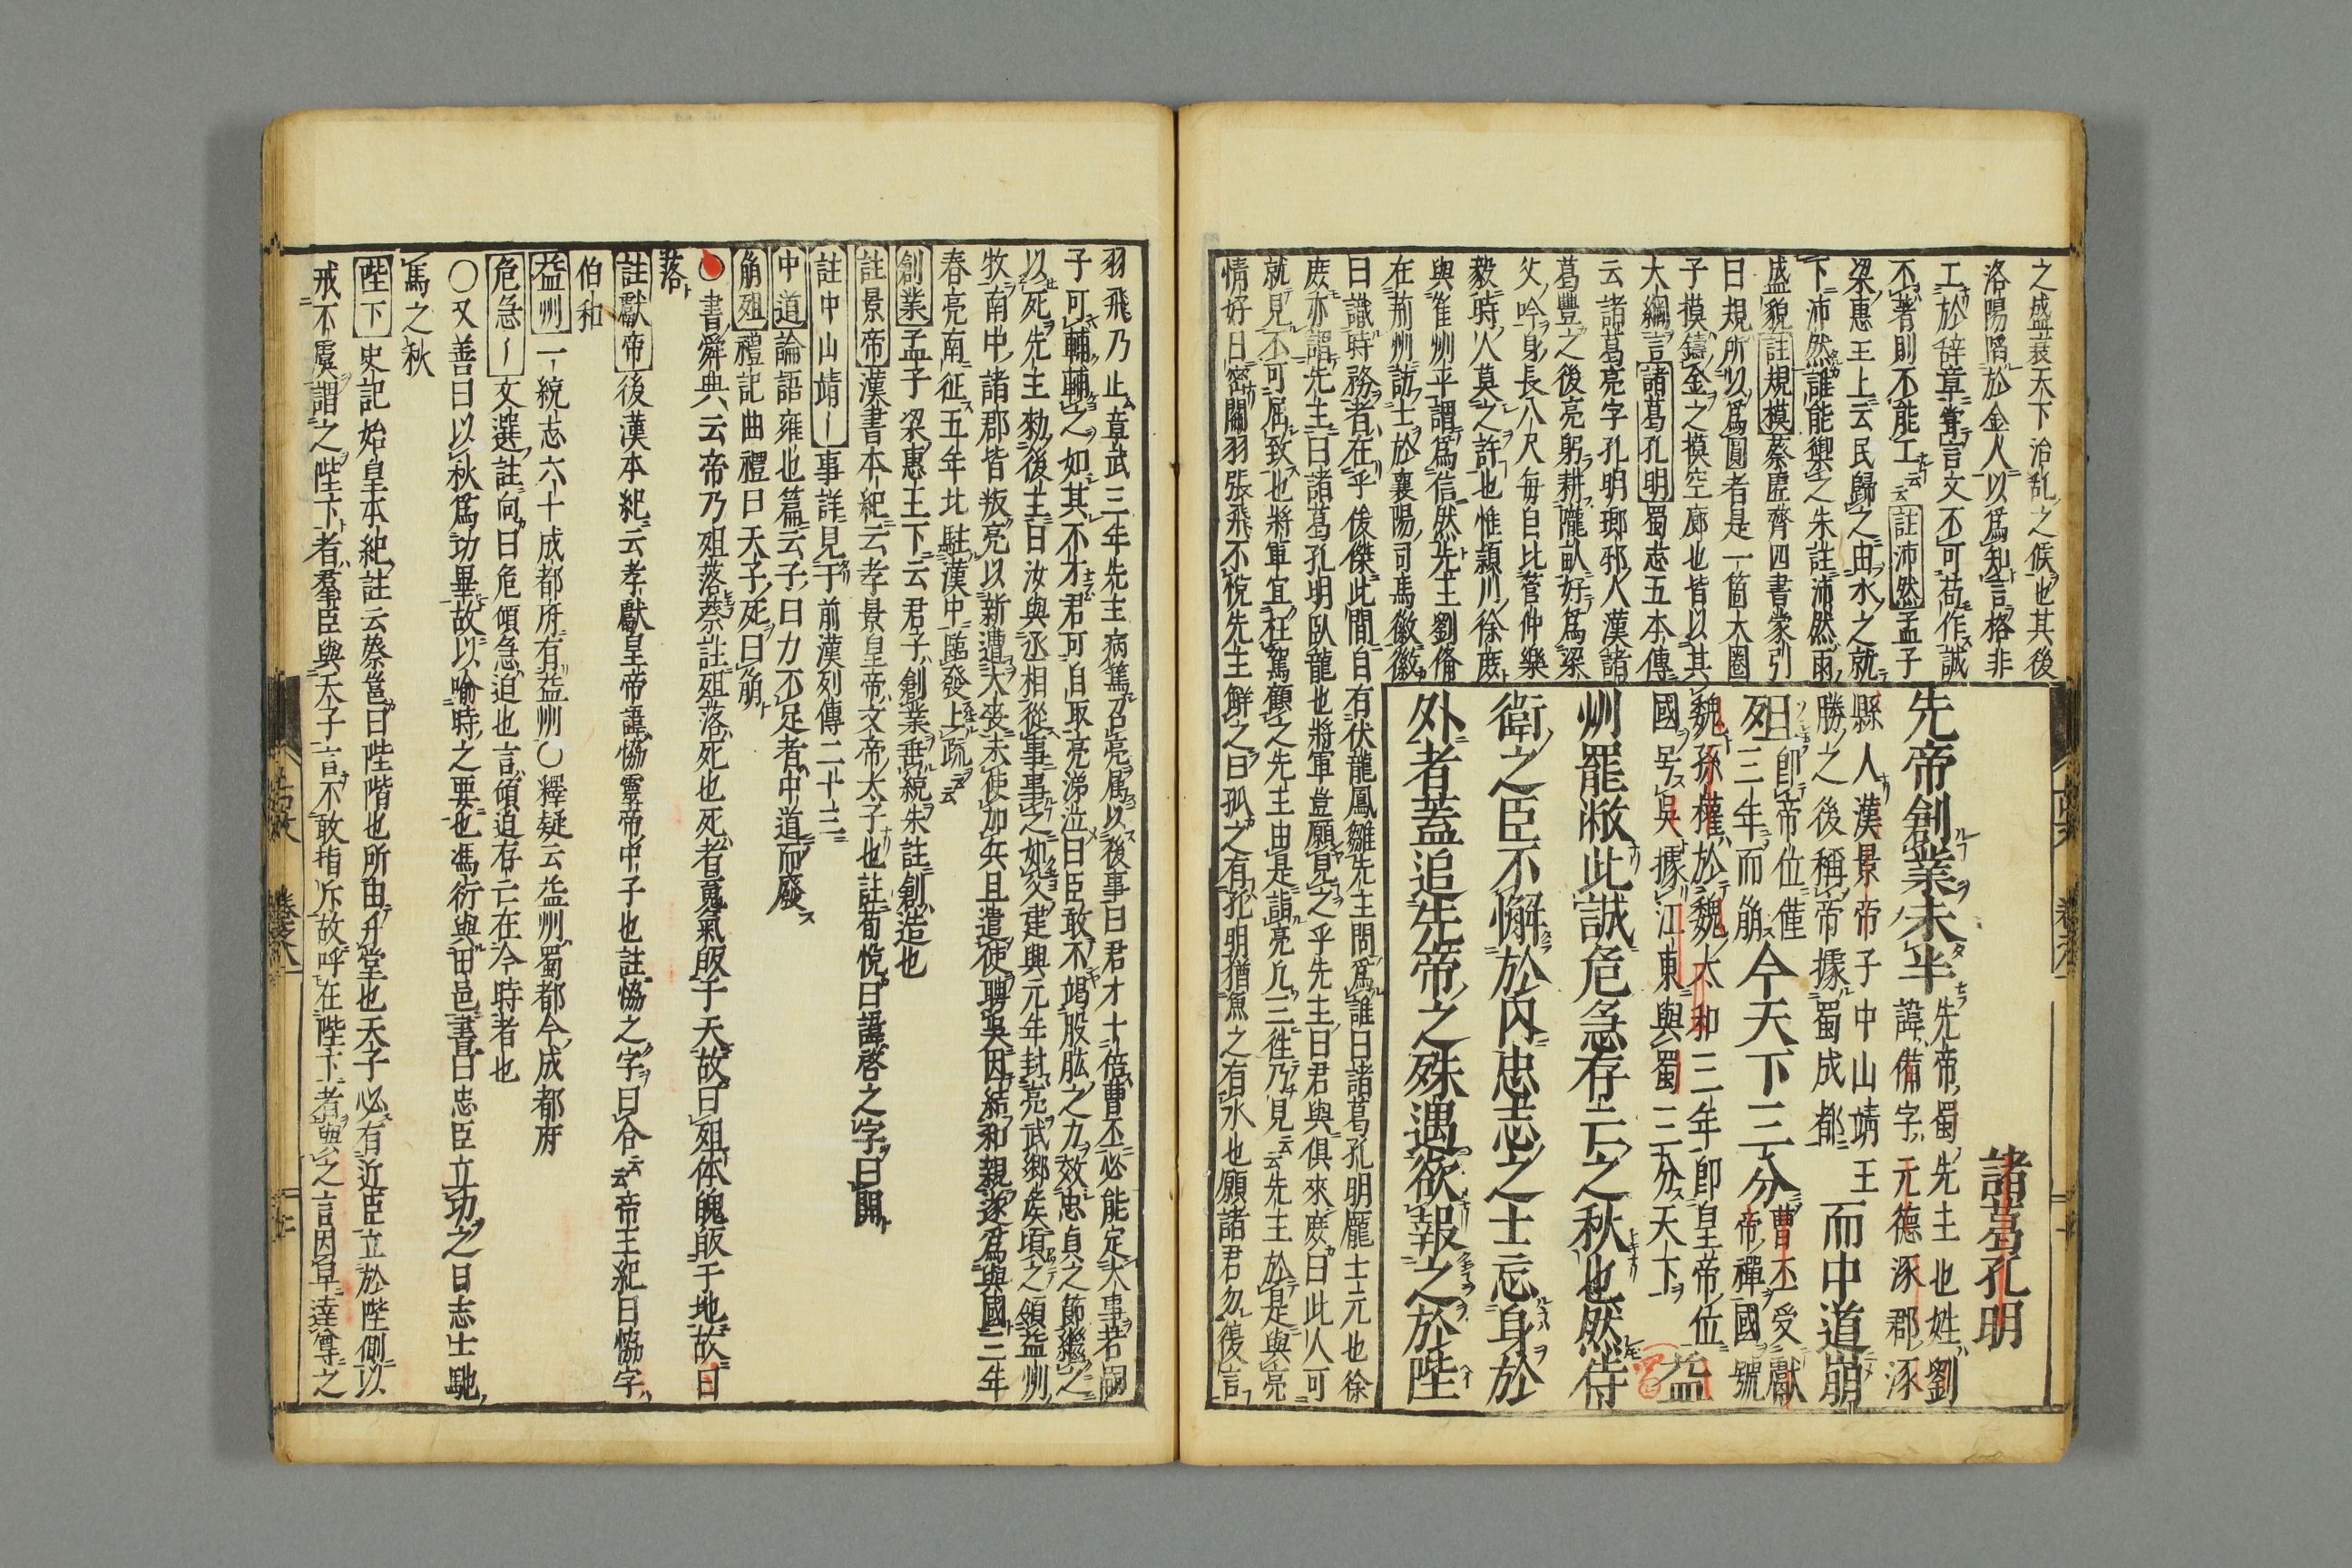 之盛衰天下治乱之候也其後
洛陽陷於金人以為知言格非
工於辞章甞言文不可苟作誠
不著則不能工云云註沛然孟子
梁惠王上云民歸之由水之就
下沛然誰能禦之朱註沛然雨
盛貌註規模蔡虛齊四書蒙引
曰規所以為圓者是一箇大圈
子模鑄金之模空廓也皆以其
大綱言諸葛孔明蜀志五本傳
云諸葛亮字孔明瑯邪人漢諸
葛豐之後亮躬耕隴畝好為梁
父吟身長八尺每自比菅仲樂
毅時人莫之許也惟潁川徐庶
與崔州平謂為信然先主劉俻
在荊州訪士於襄陽司馬徽徽
曰識時務者在乎俊傑此間自有伏龍鳳雛先主問為誰曰諸葛孔明龐士元也徐
庶亦謂先主曰諸葛孔明臥龍也將軍豈願見之乎先主曰君與俱來庶曰此人可
就見不可屈致也將軍宜枉駕顧之先主由是詣亮凢三徃乃見云云先主於是與亮
情好日密關羽張飛不悅先主解之曰孤之有孔明猶魚之有水也願諸君勿復言
諸葛孔明
先帝創業未半先帝蜀先主也姓劉
諱備字元德涿郡涿
縣人漢景帝子中山靖王
勝之後稱帝據蜀成都而中道崩
殂即帝位僅
三年而崩今天下三分曹丕受獻
帝禪國號
魏孫權於魏太和三年即皇帝位
國号吳據江東與蜀三分天下益
州罷敝此誠危急存亡之秋也然侍
衛之臣不懈於內忠志之士忘身於
外者蓋追先帝之殊遇欲報之於陛
羽飛乃止章武三年先主病篤召亮属以後事曰君才十倍曹丕必能定大事若嗣
子可輔輔之如其不才君可自取亮涕泣曰臣敢不竭股肱之力效忠貞之節繼之
以死先主勑後主曰汝與丞相從事事之如父建興元年封亮武鄉矦頃之領益州
牧南中諸郡皆叛亮以新遭大丧未便加兵且遣使聘吳因結和親遂為與國三年
春亮南征五年北駐漢中臨發上疏云云
創業孟子梁惠王下云君子創業垂統朱註創造也
註景帝漢書本紀云孝景皇帝文帝太子也註荀悅曰諱啓之字曰開
註中山靖〡事詳見于前漢列傳二十三
中道論語雍也篇云子曰力不足者中道而廢
崩殂禮記曲禮曰天子死曰崩
○書舜典云帝乃殂落蔡註殂落死也死者䰟氣皈于天故曰殂体魄皈于地故曰
落
註獻帝後漢本紀云孝獻皇帝諱恊靈帝中子也註恊之字曰合云云帝王紀曰恊字
伯和
益州一統志六十成都府有益州○釋疑云益州蜀都今成都府
危急〡文選註向曰危傾急迫也言傾迫存亡在今時者也
○又善曰以秋為功畢故以喻時之要也馮衍與田邑書曰忠臣立功之日志士馳
馬之秋
陛下史記始皇本紀註云蔡邕曰陛階也所由升堂也天子必有近臣立於陛側以
戒不虞謂之陛下者羣臣與天子言不敢指斥故呼在陛下者與之言因卑達尊之